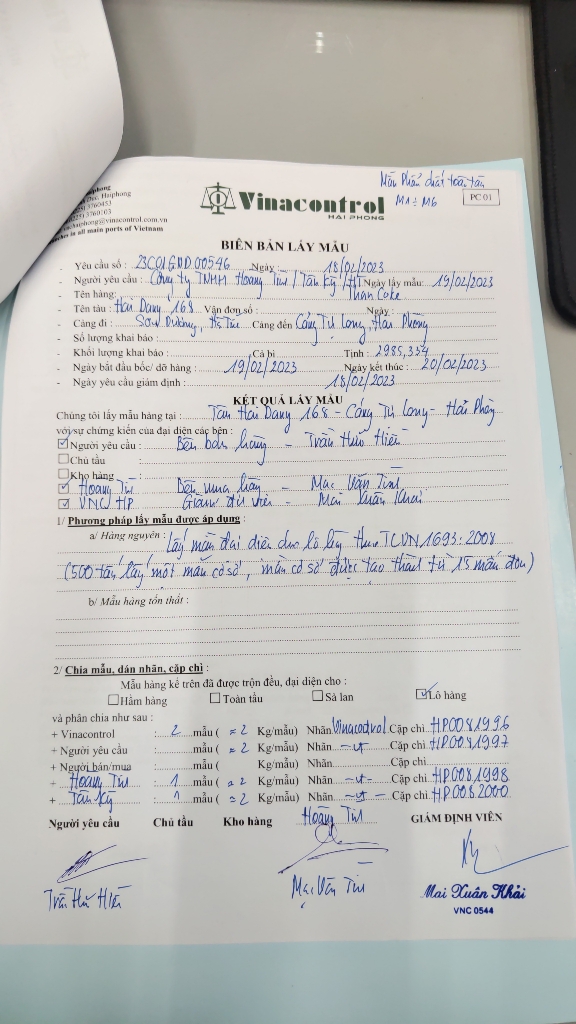 Mẫu Phẩm chất toàn tàu
M1 ÷ M6
PC 01
Haiphong
Haiphong
3760453
3760103
haiphong@vinacontrol.com.vn
in all main ports of Vietnam
Vinacontrol
HAI PHONG
BIÊN BẢN LẤY MẪU
- Yêu cầu số : 23C01GND00546 Ngày : 18/02/2023
- Người yêu cầu : Công ty TNHH Hoàng Tín / Tân Kỳ / HT Ngày lấy mẫu: 19/02/2023
- Tên hàng: Than Coke
- Tên tàu : Hải Dang 168 Vận đơn số : Ngày :
- Cảng đi : Sơn Dương, Hà Tĩnh Cảng đến Cảng Tự Long, Hải Phòng
- Số lượng khai báo :
- Khối lượng khai báo : Cả bì Tịnh : 2985,334
- Ngày bắt đầu bốc/ dỡ hàng : 19/02/2023 Ngày kết thúc : 20/02/2023
- Ngày yêu cầu giám định : 18/02/2023
KẾT QUẢ LẤY MẪU
Chúng tôi lấy mẫu hàng tại : Tàu Hải Dang 168 - Cảng Tự Long - Hải Phòng
với sự chứng kiến của đại diện các bên :
Người yêu cầu : Bên bán hàng - Trần Hữu Hiền
Chủ tầu :
Kho hàng :
Hoàng Tín Bên mua hàng - Mạc Văn Tín
VNC HP Giám định viên - Mai Xuân Khải
1/ Phương pháp lấy mẫu được áp dụng :
a/ Hàng nguyên : Lấy mẫu đại diện cho lô hàng theo TCVN 1693:2008
(500 tấn lấy một mẫu cơ sở, mẫu cơ sở được tạo thành từ 15 mẫu đơn)
b/ Mẫu hàng tổn thất :
2/ Chia mẫu, dán nhãn, cặp chì :
Mẫu hàng kể trên đã được trộn đều, đại diện cho :
Hầm hàng Toàn tầu Sà lan Lô hàng
và phân chia như sau :
+ Vinacontrol : 2 mẫu ( ≈ 2 Kg/mẫu) Nhãn Vinacontrol Cặp chì HP0081996
+ Người yêu cầu : mẫu ( ≈ 2 Kg/mẫu) Nhãn -nt- Cặp chì HP0081997
+ Người bán/mua : mẫu ( Kg/mẫu) Nhãn Cặp chì
+ Hoàng Tín : 1 mẫu ( ≈ 2 Kg/mẫu) Nhãn -nt- Cặp chì HP0081998
+ Tân Kỳ : 1 mẫu ( ≈ 2 Kg/mẫu) Nhãn -nt- Cặp chì HP0082000
Người yêu cầu Chủ tầu Kho hàng Hoàng Tín GIÁM ĐỊNH VIÊN
Trần Hữu Hiền Mạc Văn Tín Mai Xuân Khải
VNC 0544